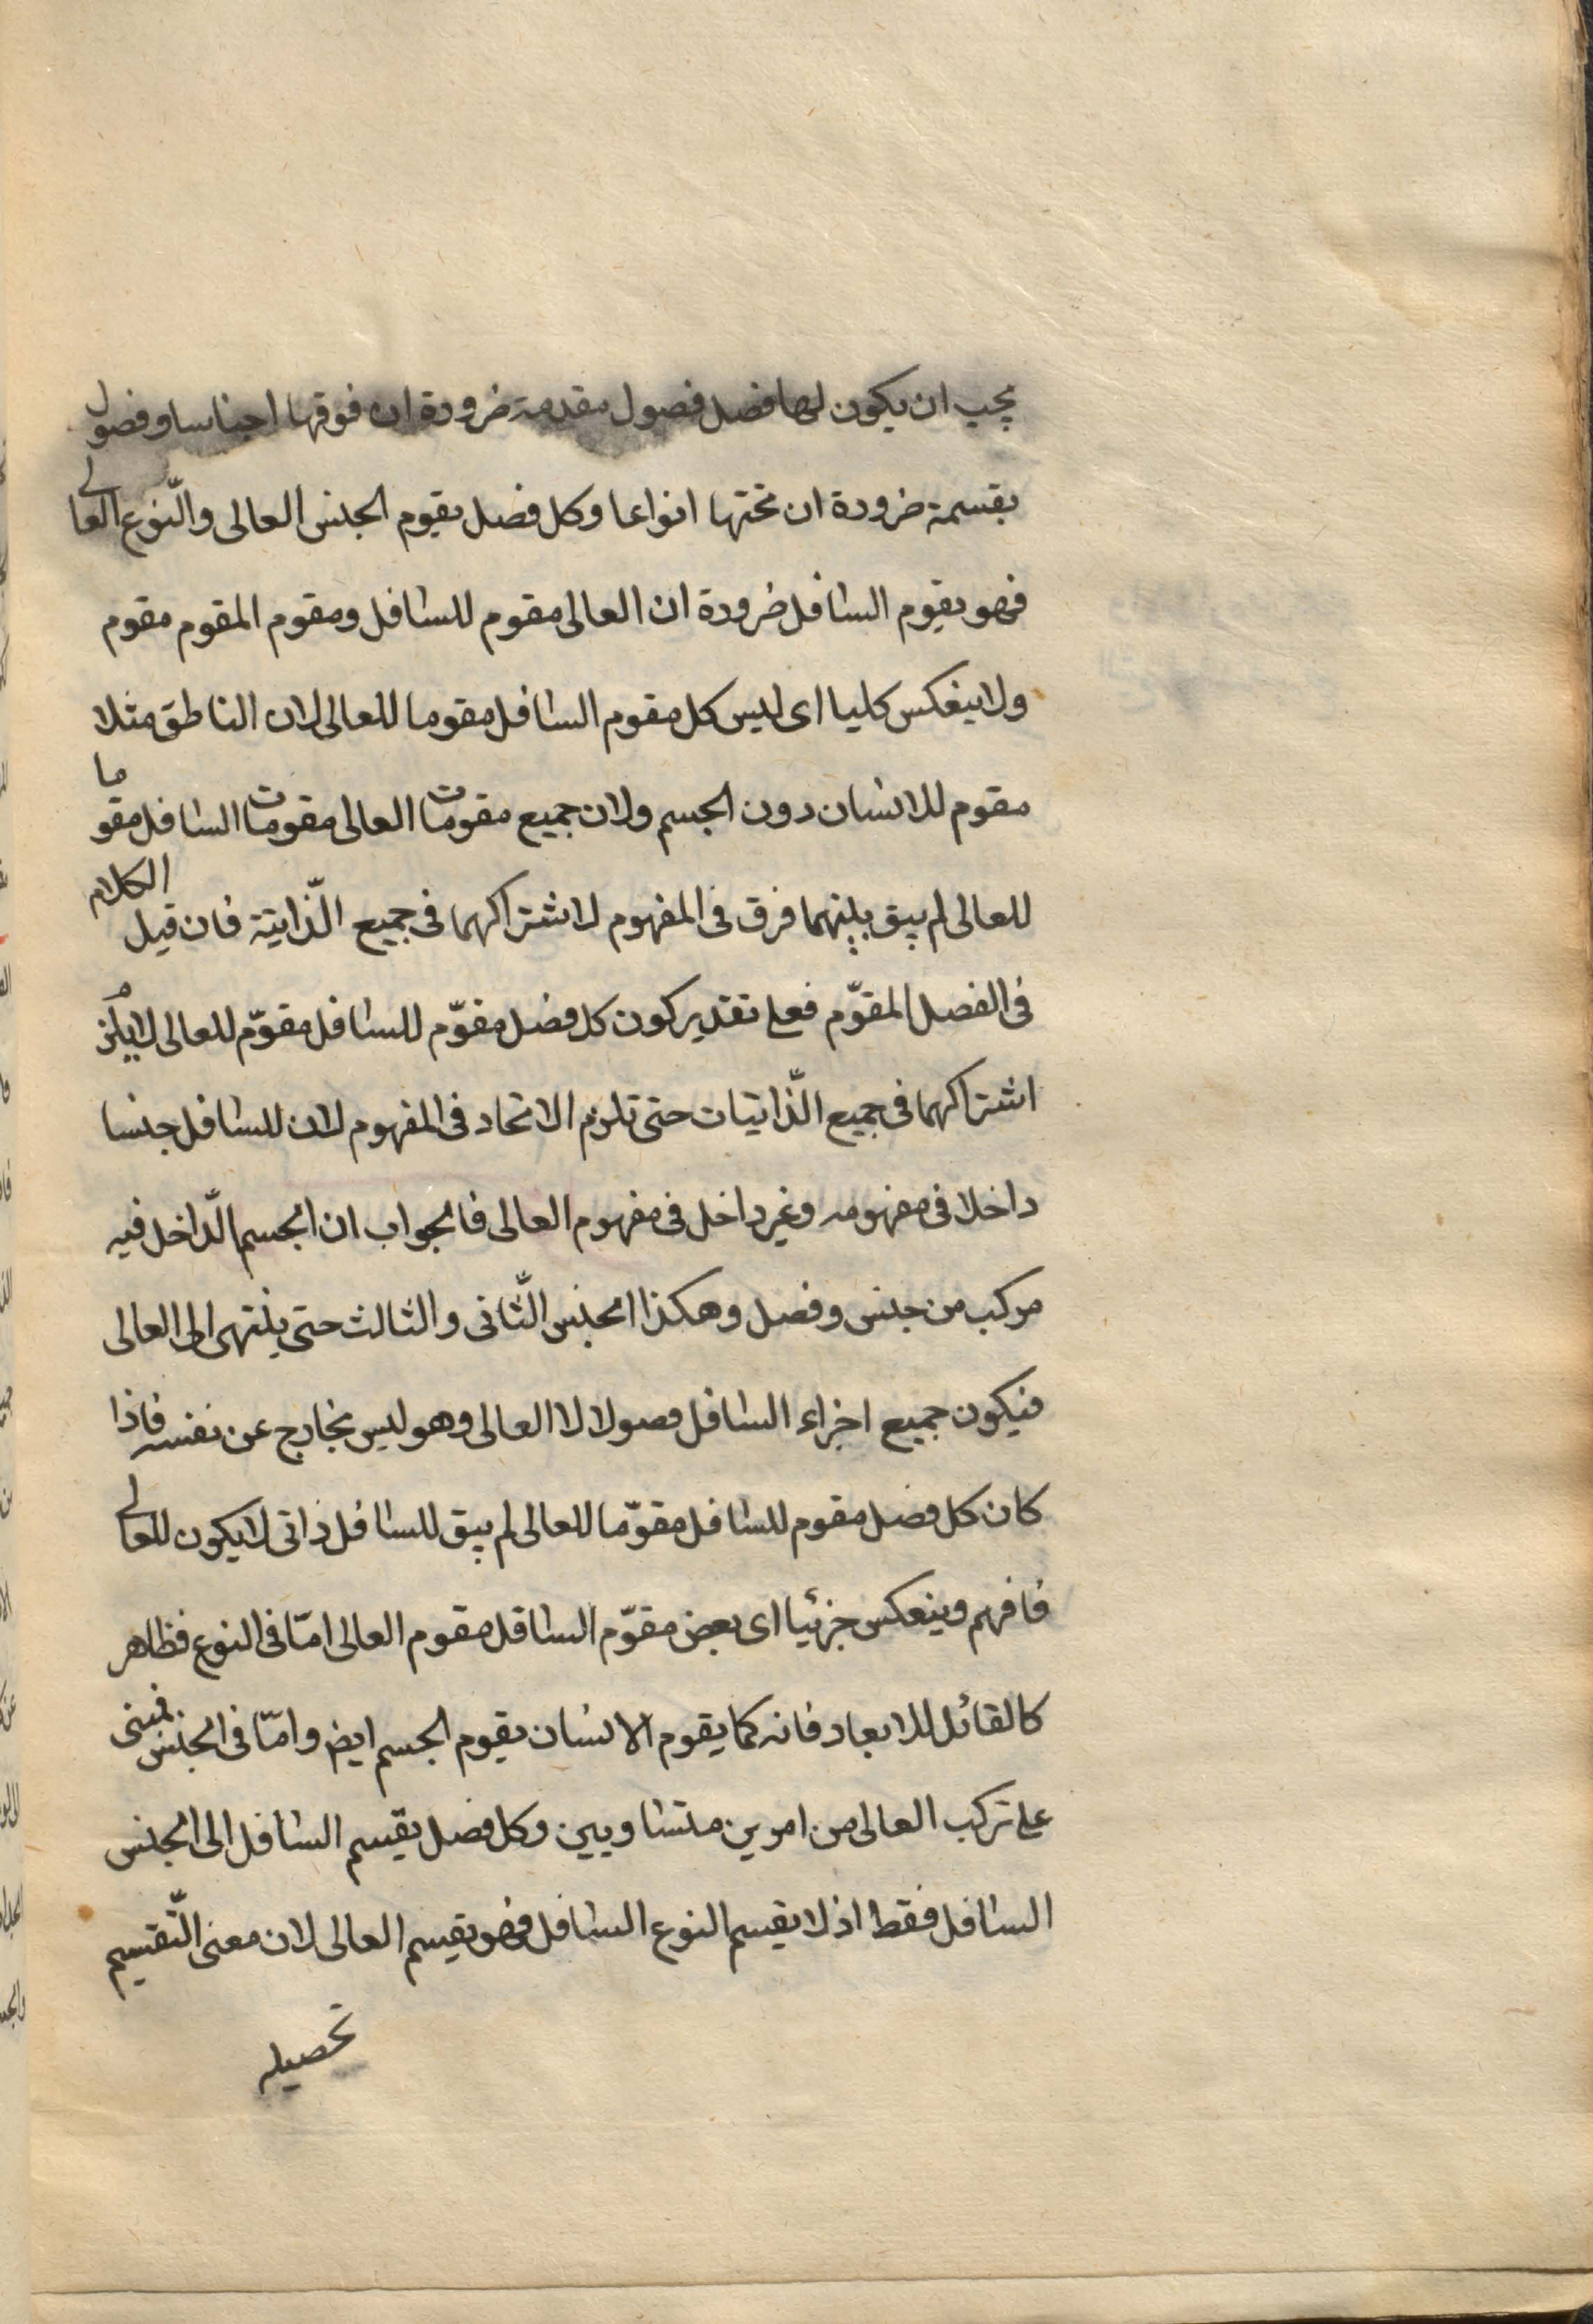 يجب ان يكون لها فصل فصول مقدمة ضرورة ان فوقها اجناسا وفصول
بقسمة ضرورة ان تحتها انواعا وكل فصل يقوم الجنس العالى والنّوع العالى
فهو يقوم السافل ضرورة ان العالى مقوم للسافل ومقوم المقوم مقوم
ولا ينعكس كليا اى ليس كل مقوم السافل مقوما للعالى لان الناطق مثلا
مقوم للانسان دون الجسم ولان جميع مقومات العالى مقومات السافل مقوما
للعالى لم يبق بينهما فرق فى المفهوم لاشتراكهما فى جميع الذّاتية فان قيل الكلام
فى الفصل المقوّم فعلى تقدير كون كل فصل مقوّم للسافل مقوّم للعالى لا يلزم
اشتراكهما فى جميع الذّاتيات حتى تلزم الاتحاد فى المفهوم لان للسافل جنسا
داخلا فى مفهومه وغير داخل فى مفهوم العالى فالجواب ان الجسم الدّاخل فيه
مركب من جنس وفصل وهكذا الجنس الثّانى والثالث حتى ينتهى الى العالى
فيكون جميع اجزاء السافل فصولا لا العالى وهو ليس بخارج عن نفسه فاذا
كان كل فصل مقوم للسافل مقوّما للعالى لم يبق للسافل ذاتى لا يكون للعالى
فافهم وينعكس جزئيا اى بعض مقوّم السافل مقوم العالى امّا فى النوع فظاهر
كالقائل للابعاد فانه كما يقوم الانسان يقوم الجسم ايض وامّا فى الجنس فمبنى
على تركب العالى من امرين متساويين وكل فصل يقّسم السافل الى الجنس
السافل فقط اذ لا يقسم النوع السافل فهو يقسم العالى لان معنى التّقسيم
تحصيله